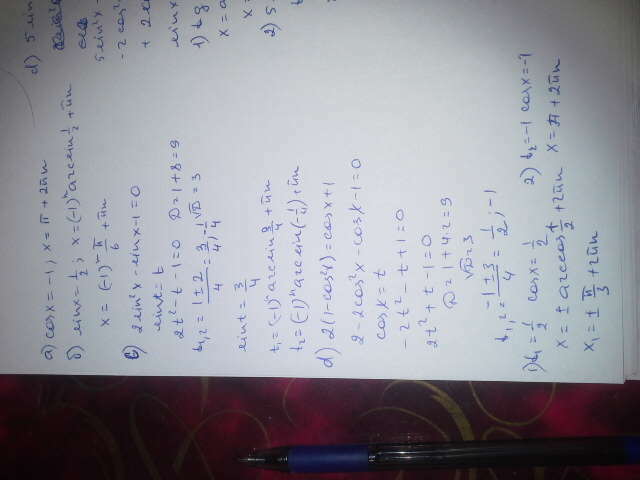 а) cosx = -1; x = π + 2πn
б) sinx = 1/2; x = (-1)^n arcsin 1/2 + πn
x = (-1)^n π/6 + πn
c) 2sin²x - sinx - 1 = 0
sint = t
2t² - t - 1 = 0 D = 1 + 8 = 9
t₁,₂ = (1 ± 2)/4 = 3/4; -1/4 √D = 3
sint = 3/4
t₁ = (-1)^n arcsin 3/4 + πn
t₂ = (-1)^n arcsin(-1/4) + πn
d) 2(1 - cos²x) = cosx + 1
2 - 2cos²x - cosx - 1 = 0
cosx = t
- 2t² - t + 1 = 0
2t² + t - 1 = 0
D = 1 + 4·2 = 9
√D = 3
t₁,₂ = (-1 ± 3)/4 = 1/2; -1
1) t₁ = 1/2 cosx = 1/2 2) t₂ = -1 cosx = -1
x = ± arccos 1/2 + 2πn x = π + 2πn
x₁ = ± π/3 + 2πn
d) 5 sin
5 sin²x -
- 2 cos²
+ 2
sinx
1) tg
x = a
x =
2) 5